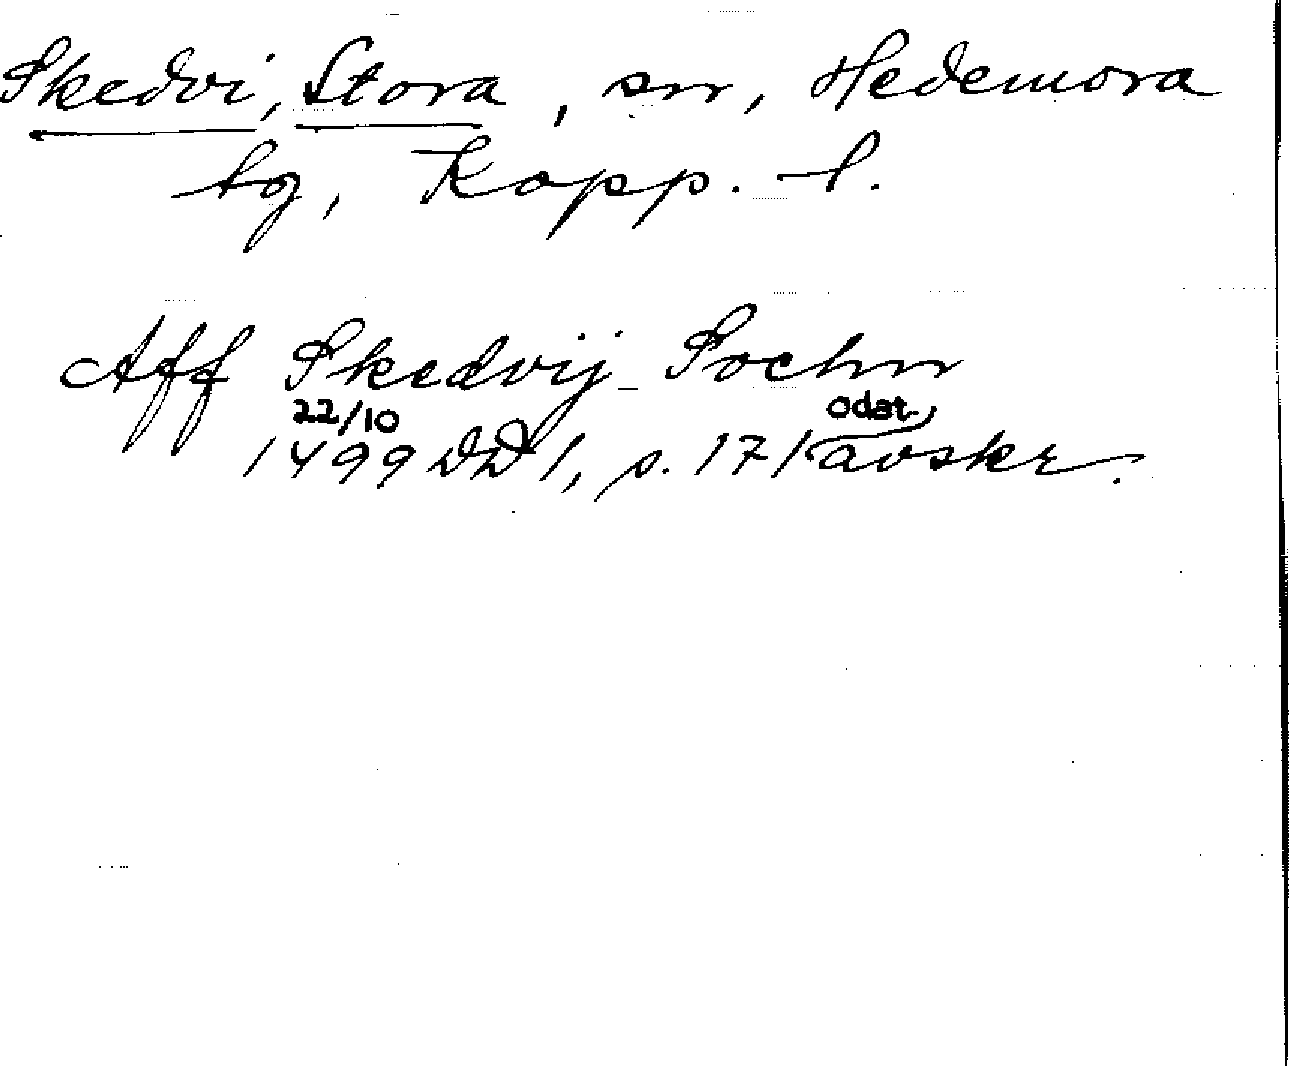 Skedvi, Stora, sn, Hedemora
tg, Kopp. l.
Aff Skedvij Sochn
22/10 odat.,
1499 DD 1, s. 171 avskr.